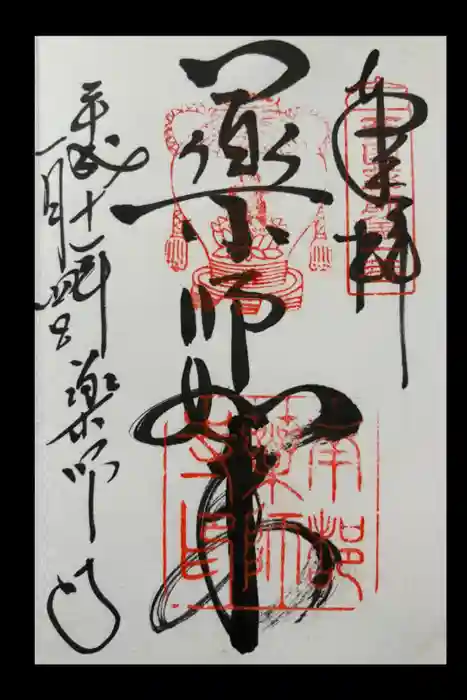 奉拝
薬師如来
南都
薬師
寺印
平成十一年
一月四日
薬師寺